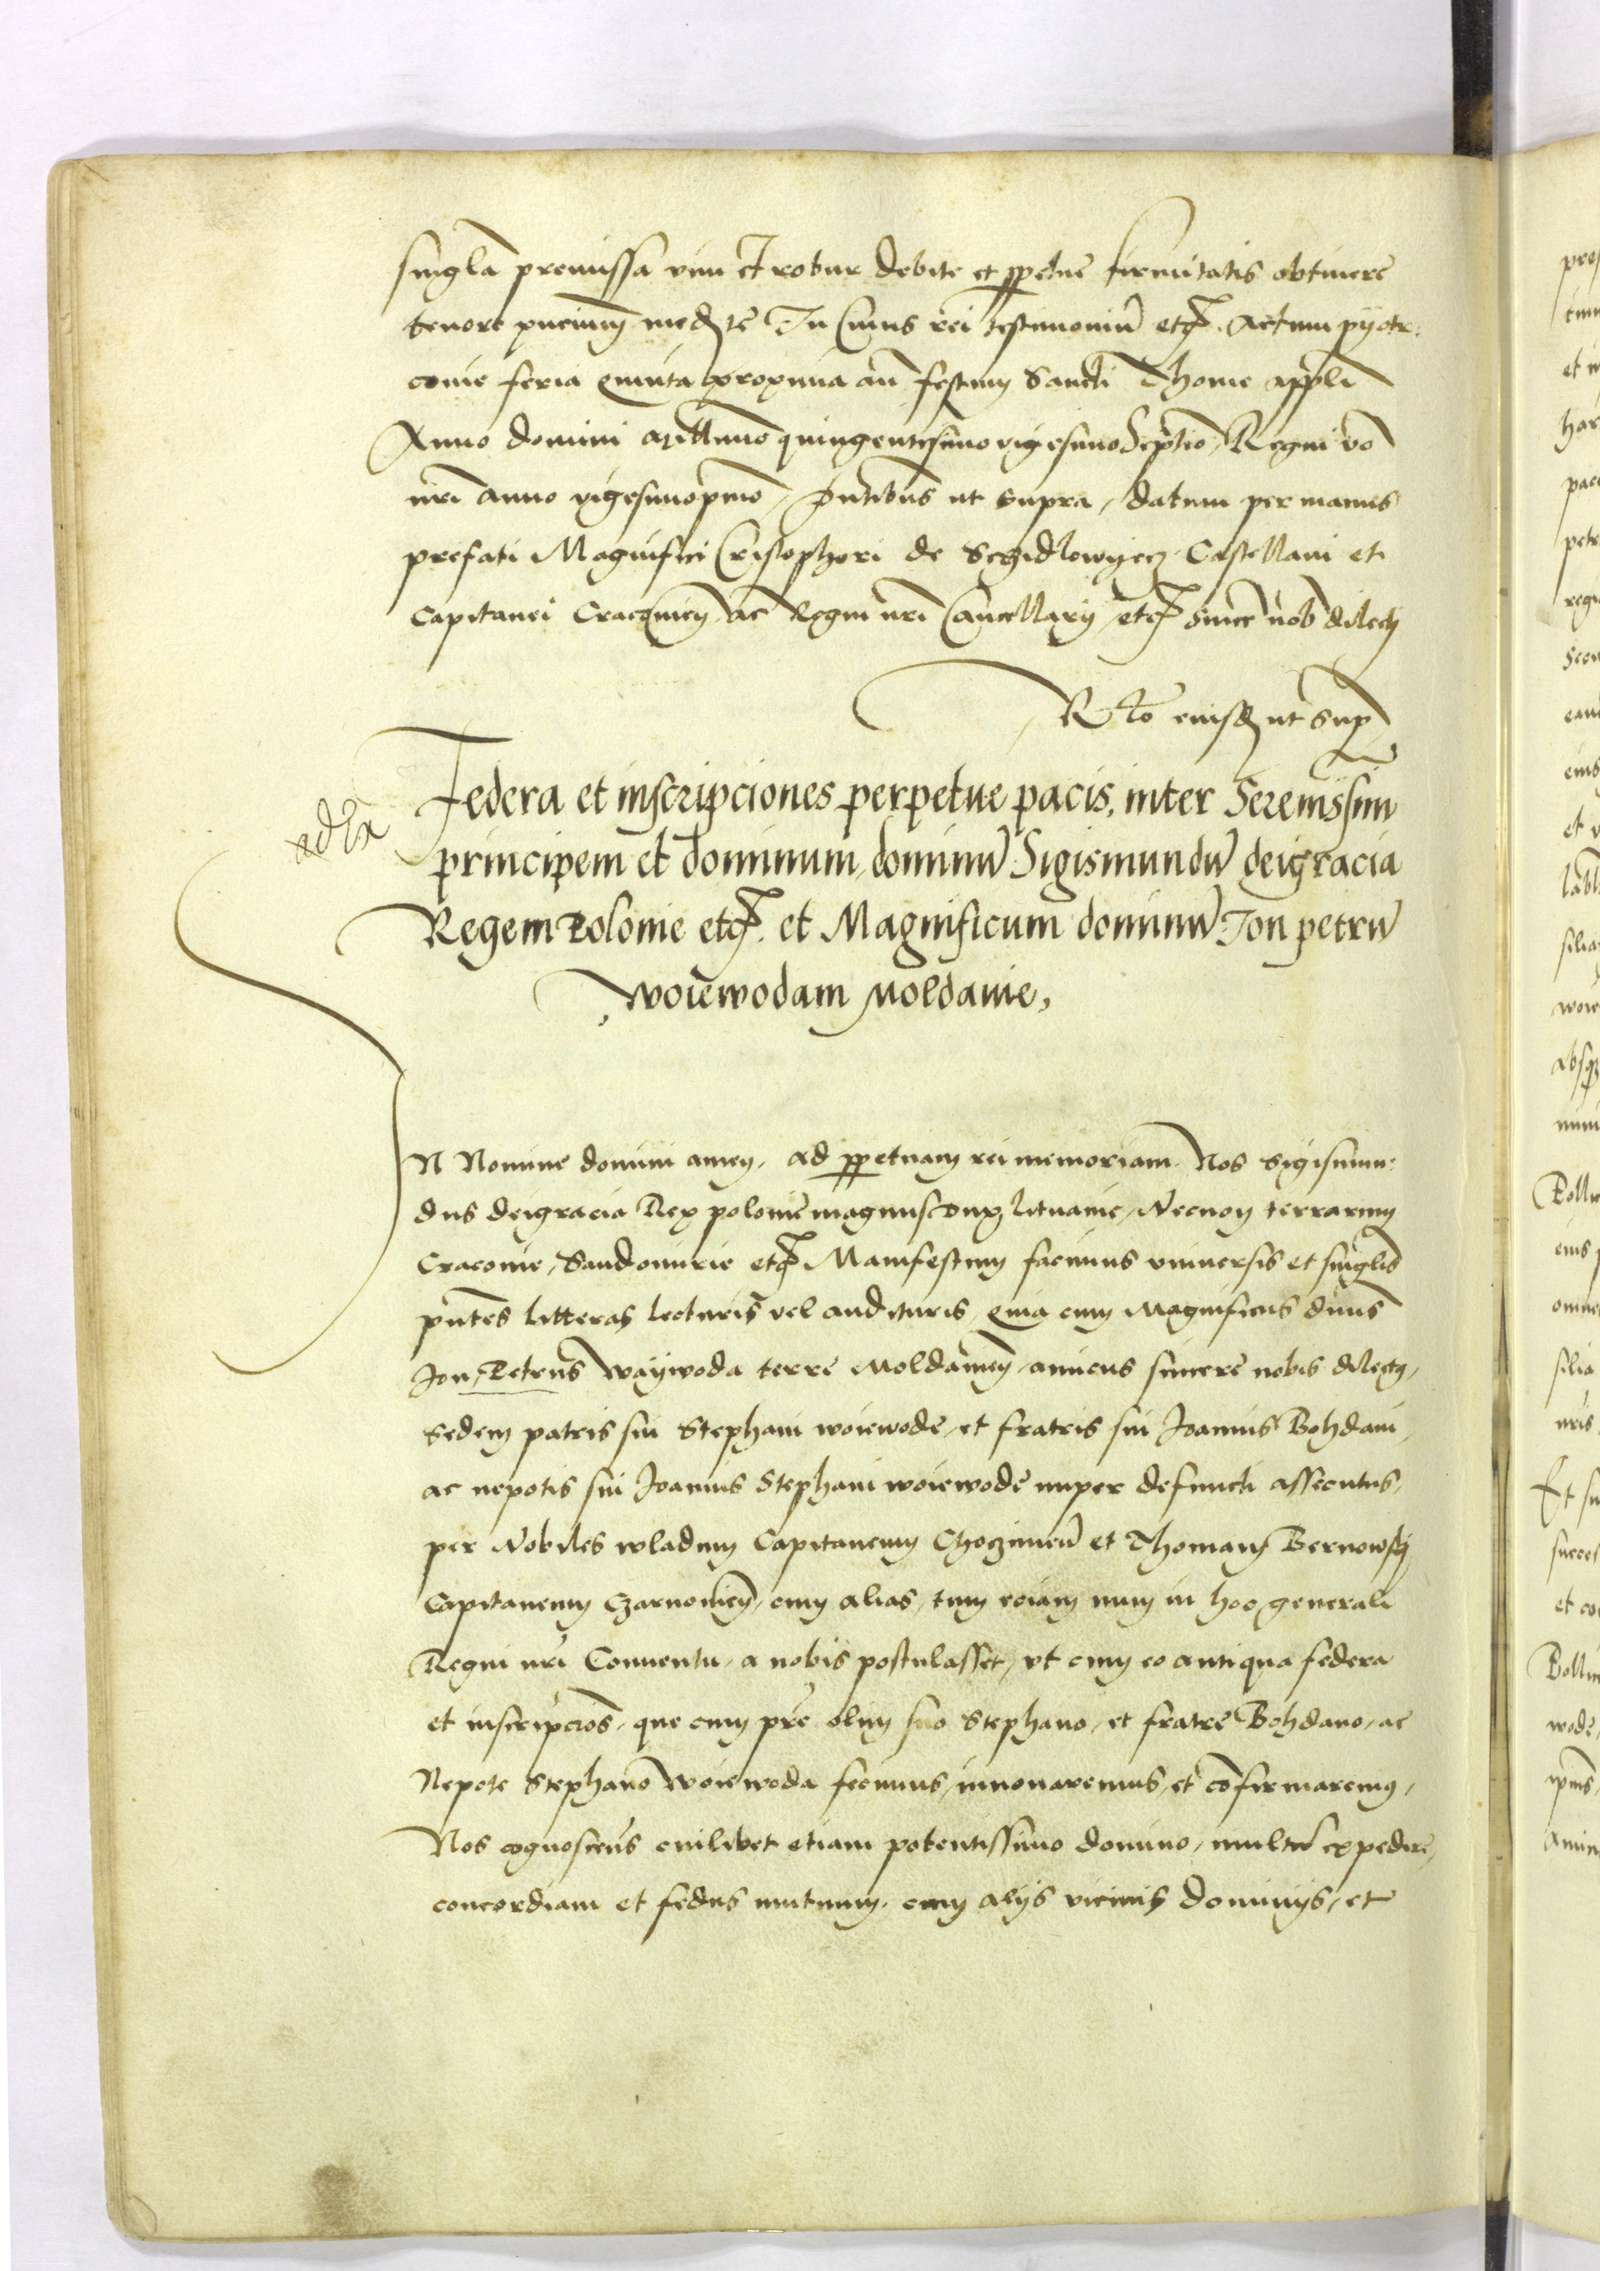 singla premissa vim et robur debite et perpetue firmitatis obtinere
tenore pncium med te In Cuius rei testimoniu etc. Actum pyotr:
couie feria quinta proxima an festum Sancti Thome appli
Anno domini millimo quingentesimo vigesimo Septio, Regni vo
nri anno vigesimopmo, Pntibus ut supra, datum per manus
prefati Magnifici Cristophori de Schidlowyecz Castellani et
Capitanei Cracouien ac Regni nri Cancellarij etc since nob dilecti
Rto eiusd ut Sup
ad Ex
Federa et inscripciones perpetue pacis, inter Serenissim
principem et dominum, dominu Sigismundu deigracia
Regem Polonie etc. et Magnificum dominu Ion petru
woiewodam Moldauie,
IN Nomine domini amen, ad perpetuam rei memoriam. Nos Sigismun:
dus deigracia Rex polonie magnus dux lituanie, Necnon terrarum
Cracouie, Sandomirie etc Manifestum facimus vniuersis et singlis
pntes litteras lecturis vel audituris, quia cum Magnificus dnus
Ion Petrus Waywoda terre Moldauien, amicus sincere nobis dilectus,
Sedem patris sui Stephani woiewode, et fratris sui Joannis Bohdani,
ac nepotis sui Joannis Stephani woiewode nuper defuncti assecutus,
per Nobiles wladum Capitaneum Choczimien et Thomam Bernowsky
Capitaneum Czarnouien, cum alias, tum eciam nunc in hoc generali
Regni nri Conuentu, a nobis postulasset, vt cum eo antiqua federa
et inscripcios, que cum pre olim suo Stephano, et fratre Bohdano, ac
Nepote Stephano woiewoda fecimus, innouaremus, et confirmaremus,
Nos cognoscens cuilibet etiam potentissimo domino, multu expedire,
concordiam et fedus mutuum, cum alijs vicinis dominijs, et